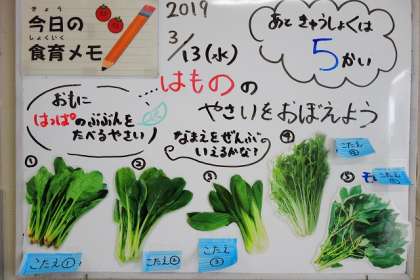 きょう
今日の
しょくいく
食育メモ
2019
3/13(水)
あときゅうしょくは
5かい
はものの
やさいをおぼえよう
おもに
はっぱのぶぶんを
たべるやさい！
なまえをぜんぶ
いえるかな？
①
②
③
④
⑤
こたえ①
こたえ②
こたえ③
こたえ④